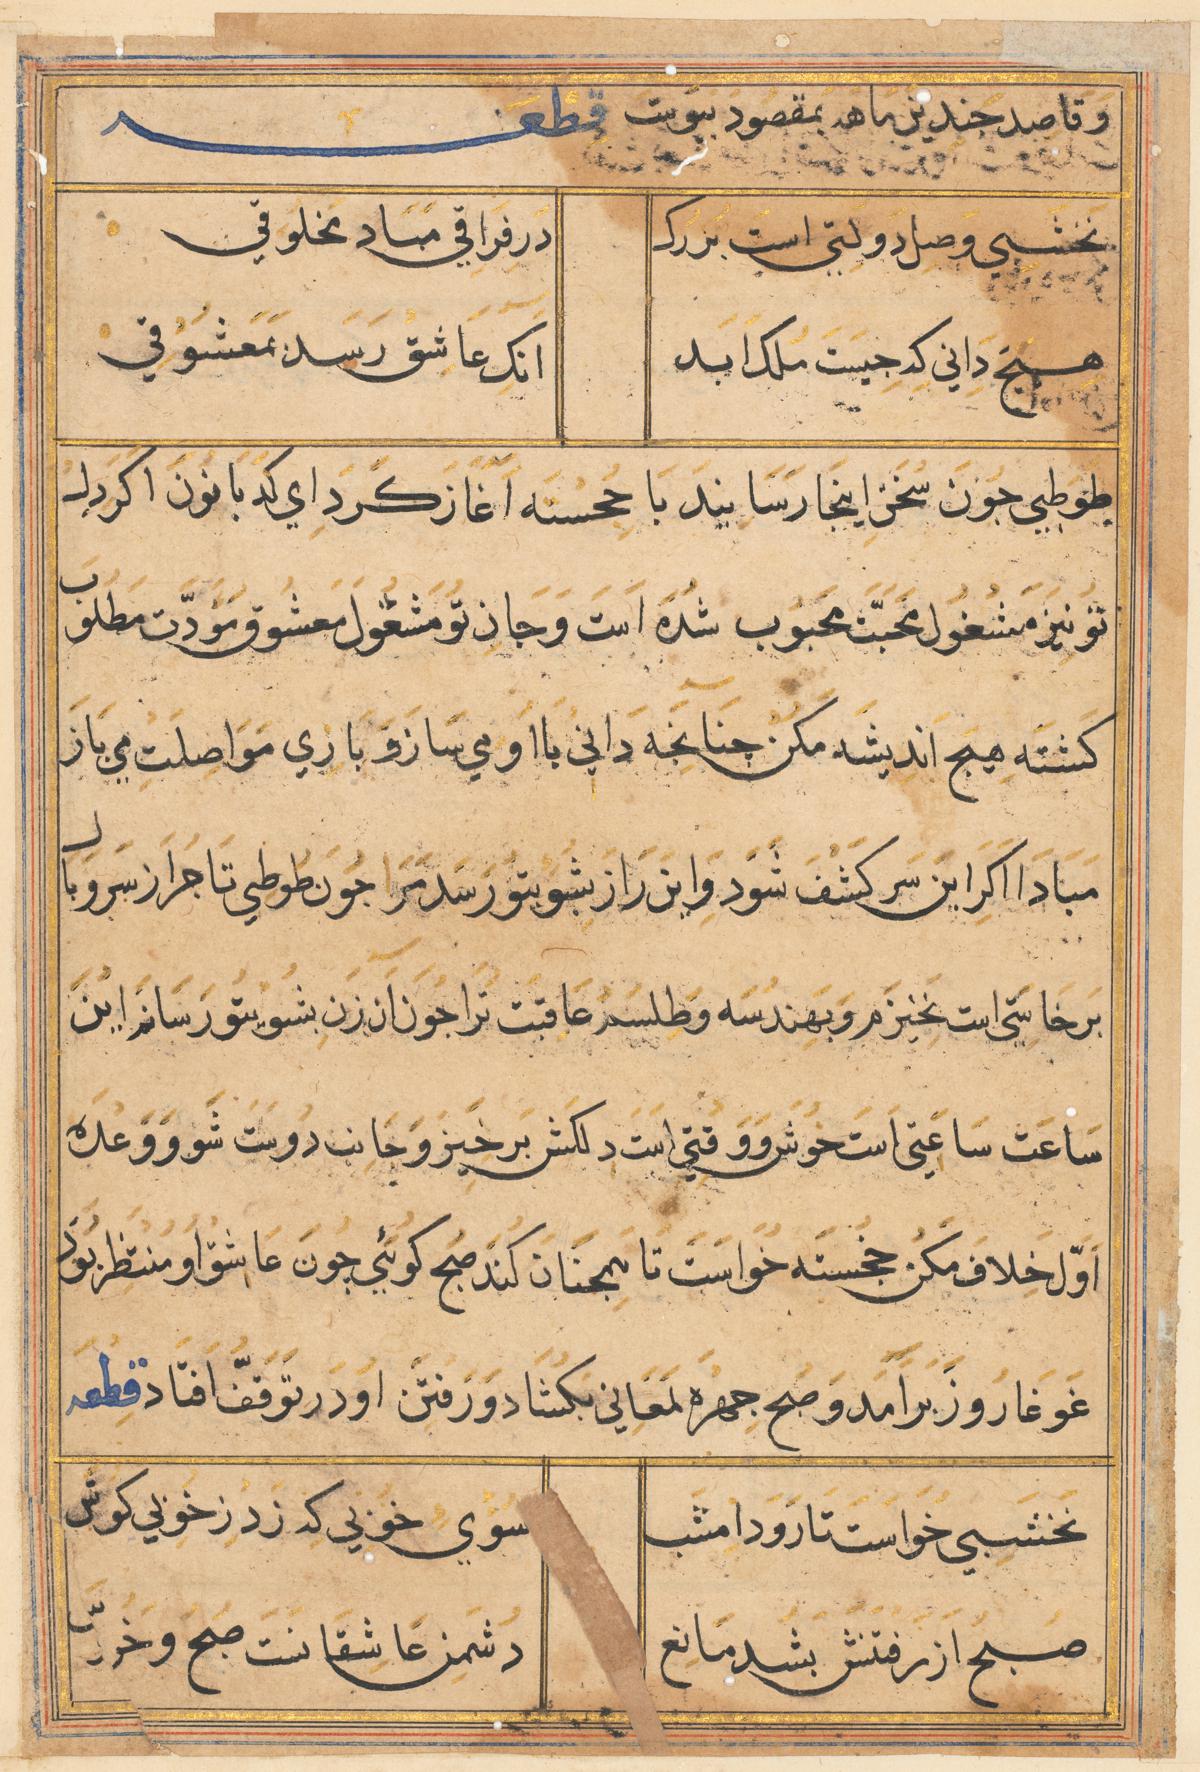 و قاصد چندین ماهه بمقصود پیوست قطعه
نخشبی وصل دولتی است بزرک در فراقی مباد مخلوقی
هیچ دانی که چیست ملک ابد انک عاشق رسد بمعشوقی
طوطی چون سخن اینجا رسانید با خجسته آغاز کرد ای کدبانون اکر دل
تو نیز مشغول محبت محبوب شده است و جان تو مشغول معشوق مودّت مطلوب
کشته هیچ اندیشه مکن چنانچه دانی با او می ساز و بازی مواصلت می باز
مبادا اکر این سر کشف شود و این راز بشوی تو رسد مرا چون طوطی تاجر از سر و بال
بر خاستی است بخیزم و بهندسه و طلسم عاقبت ترا چون آن زن بشوی تو رسانم این
ساعت ساعتی است خوش و وقتی است دلکش برخیز و جانب دوست شو و وعده
اوّل خلاف مکن خجسته خواست تا همچنان کند صبح کوئی چون عاشق او منتظر بود
غوغا روز برآمد و صبح چهره لمعانی بکشاد و رفتن او در توقف افتاد قطعه
نخشبی خواست تا رود امشب سوی خوبی که زد ز خوبی کوس
صبح از رفتنش بشد مانع دشمن عاشقانست صبح و خروس